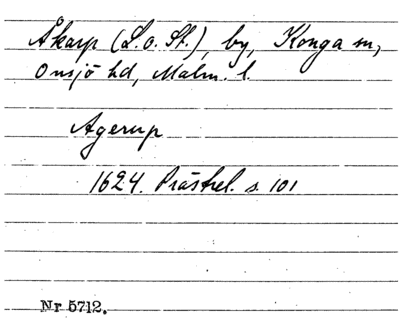 Åkarp (L. o. St.), by, Konga sn,
Onsjö hd, Malm. l.
Agerup
1624. Prästrel. s. 101
Nr 5712.